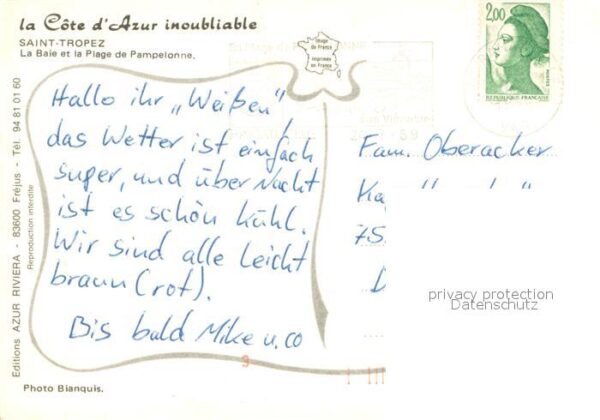 la Côte d'Azur inoubliable
SAINT-TROPEZ
La Baie et la Plage de Pampelonne.
Image de France
imprimée en France
2,00
POSTES
REPUBLIQUE FRANÇAISE
89
Hallo ihr „Weißen"!
das Wetter ist einfach
super, und über Nacht
ist es schön kühl.
Wir sind alle leicht
braun (rot).
Bis bald Mike u. co
Fam. Oberacker
Ka
75
privacy protection
Datenschutz
Editions AZUR RIVIERA - 83600 Fréjus - Tél. 94 81 01 60
Reproduction interdite
9
Photo Bianquis.